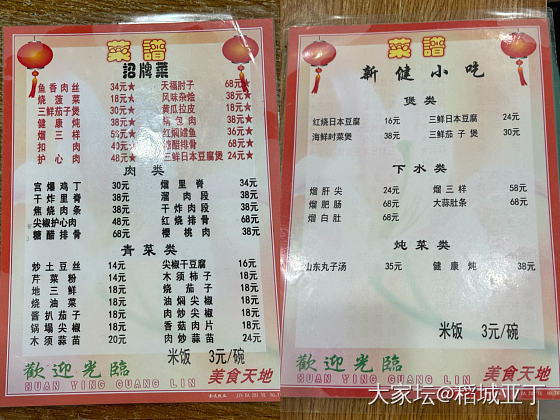 菜譜
招牌菜
鱼香肉丝 34元★ 天福肘子 68元★
烧菠菜 18元★ 风味杂烩 38元★
三鲜茄子煲 30元★ 黄瓜拉皮 18元★
健康炖 38元★ 锅包肉 38元★
熘三样 58元★ 红焖鳕鱼 36元★
扣肉 40元★ 糖醋排骨 68元★
护心肉 48元★ 三鲜日本豆腐煲 24元★
肉类
宫爆鸡丁 30元 熘里脊 34元
干炸里脊 38元 溜肉段 38元
焦烧肉条 38元 干炸肉段 38元
尖椒护心肉 48元 红烧排骨 68元
糖醋排骨 68元 樱桃肉 38元
青菜类
炒土豆丝 14元 尖椒干豆腐 16元
芹菜粉 14元 木须柿子 18元
地三鲜 18元 烧茄子 18元
烧油菜 18元 油焖尖椒 18元
酱扒茄子 18元 肉炒尖椒 18元
锅塌尖椒 18元 香菇肉片 18元
木须蒜苗 20元 肉炒蒜苗 24元
米饭 3元/碗
歡迎光臨
HUAN YING GUANG LIN
美食天地
菜譜
新健小吃
煲类
红烧日本豆腐 16元 三鲜日本豆腐 24元
海鲜时菜煲 38元 三鲜茄子煲 30元
下水类
熘肝尖 24元 熘三样 58元
熘肥肠 68元 大蒜肚条 68元
熘白肚 68元
炖菜类
山东丸子汤 35元 健康炖 38元
米饭 3元/碗
歡迎光臨
HUAN YING GUANG LIN
美食天地
大家坛@稻城亚丁